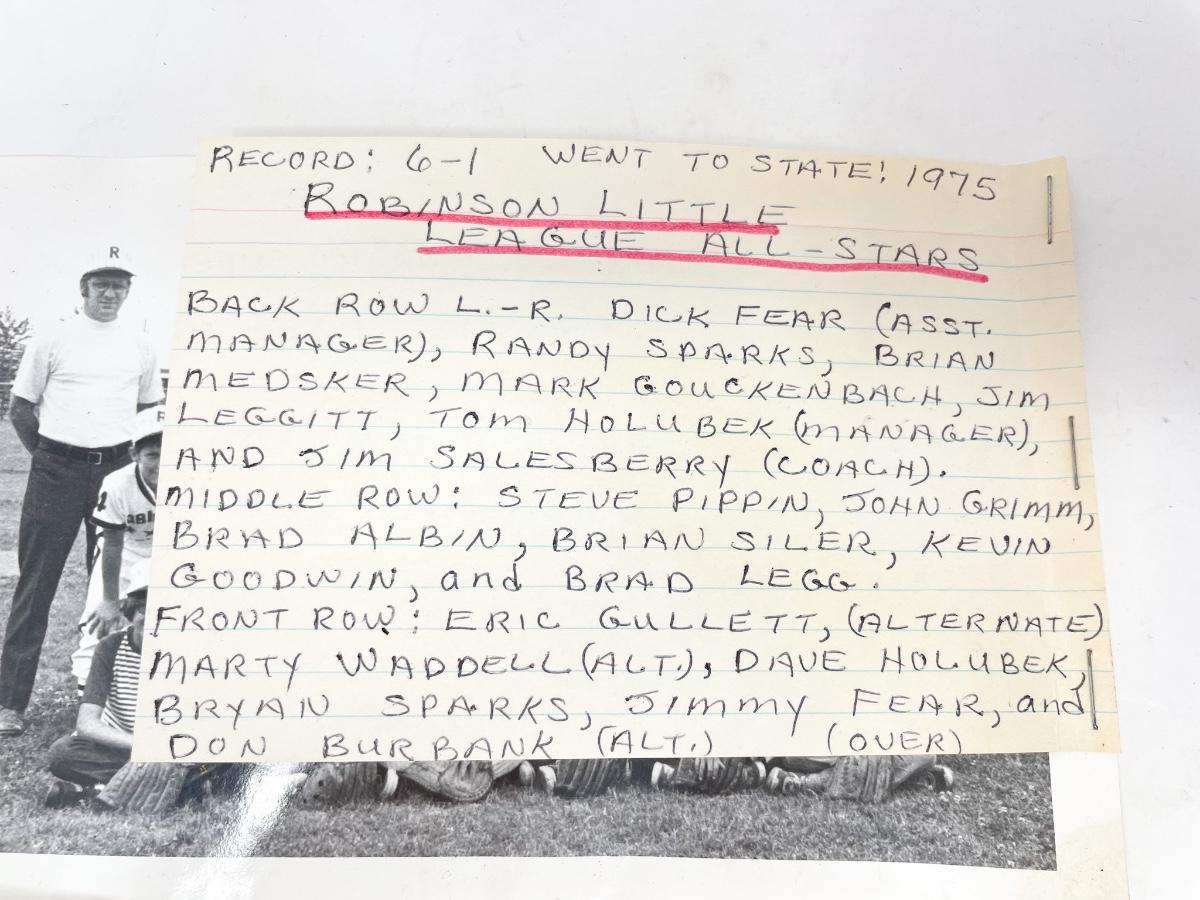 RECORD: 6-1 WENT TO STATE! 1975
ROBINSON LITTLE
LEAGUE ALL-STARS
BACK ROW L.-R. DICK FEAR (ASST.
MANAGER), RANDY SPARKS, BRIAN
MEDSKER, MARK GOUCKENBACH, JIM
LEGGITT, TOM HOLUBEK (MANAGER),
AND JIM SALESBERRY (COACH).
MIDDLE ROW: STEVE PIPPIN, JOHN GRIMM,
BRAD ALBIN, BRIAN SILER, KEVIN
GOODWIN, and BRAD LEGG.
FRONT ROW: ERIC GULLETT, (ALTERNATE)
MARTY WADDELL (ALT.), DAVE HOLUBEK,
BRYAN SPARKS, JIMMY FEAR, and
DON BURBANK (ALT.) (OVER)
R
R